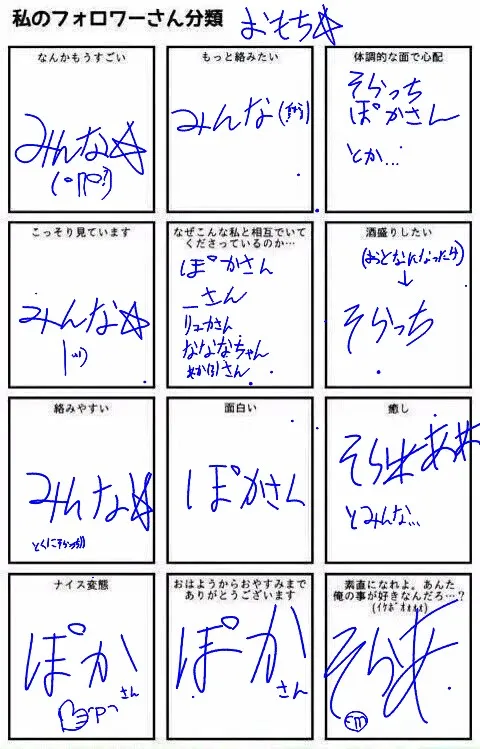 私のフォロワーさん分類
おもち☆
なんかもうすごい
みんな☆
もっと絡みたい
みんな
体調的な面で心配
そらっち
ぽかさん
とか…
こっそり見ています
みんな☆
なぜこんな私と相互でいて
くださっているのか…
ぽかさん
_さん
リュカさん
なななちゃん
さん
酒盛りしたい
(おとなになったら)
↓
そらっち
絡みやすい
みんな☆
面白い
ぽかさん
癒し
とみんな…
ナイス変態
ぽか
さん
おはようからおやすみまで
ありがとうございます
ぽか
さん
素直になれよ。あんた
俺の事が好きなんだろ…?
(ｲｹﾎﾞｵｫｫｫ)